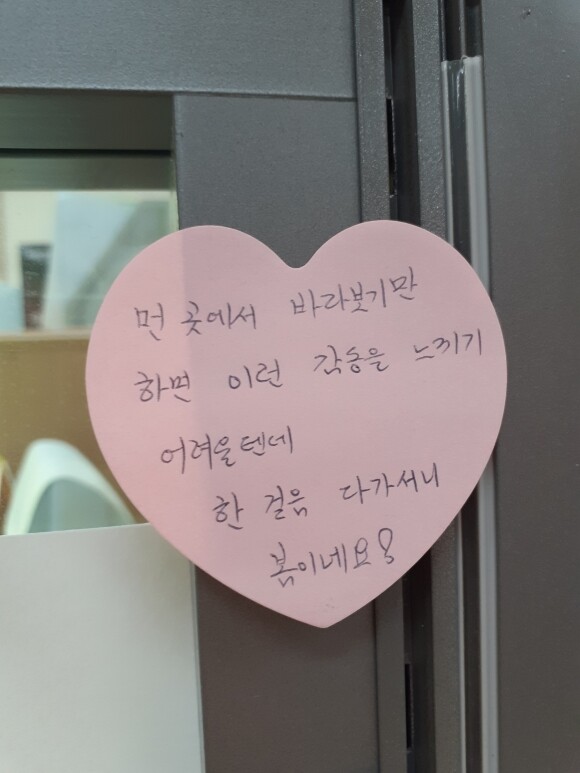 먼 곳에서 바라보기만
하면 이런 감동을 느끼기
어려울텐데
한 걸음 다가서니
봄이네요!